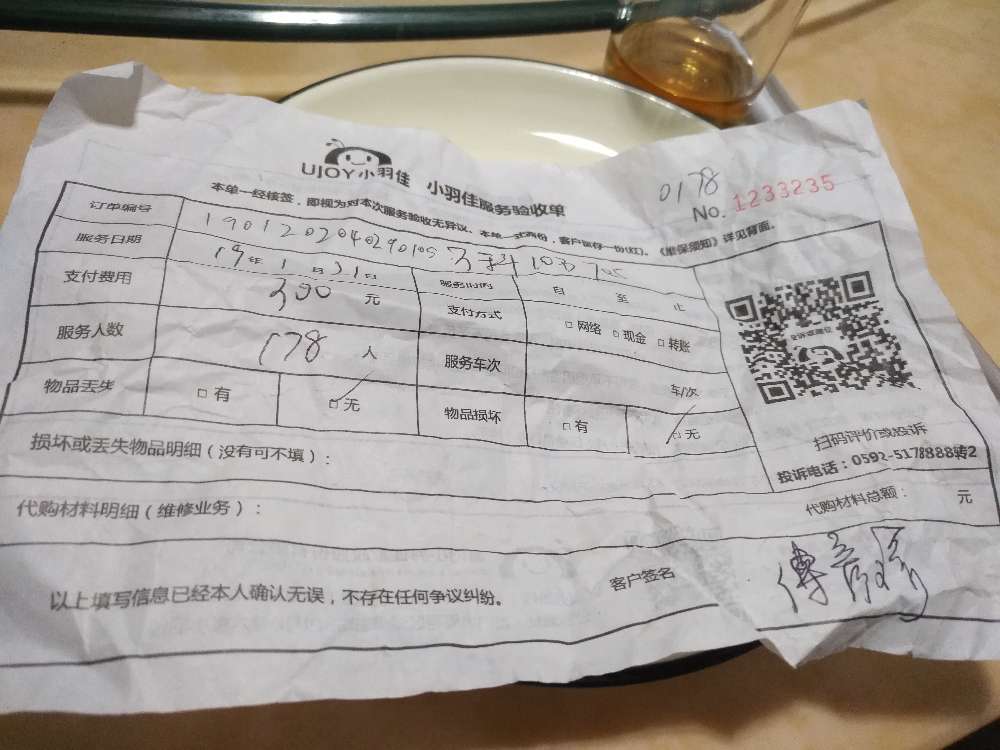 UJOY小羽佳 小羽佳服务验收单
0178
No. 1233235
本单一经核签，即视为对本次服务验收无异议。本单一式两份，客户留存一份(红)。《维保须知》详见背面。
订单编号
服务日期 19年1月31日 服务时间 自 至 止
支付费用 300 元 支付方式 □网络 □现金 □转账
服务人数 178 人 服务车次 车/次
物品丢失 □有 □无 物品损坏 □有 □无
扫码评价或投诉
投诉电话：0592-5178888转2
损坏或丢失物品明细（没有可不填）：
代购材料明细（维修业务）： 代购材料总额： 元
以上填写信息已经本人确认无误，不存在任何争议纠纷。 客户签名